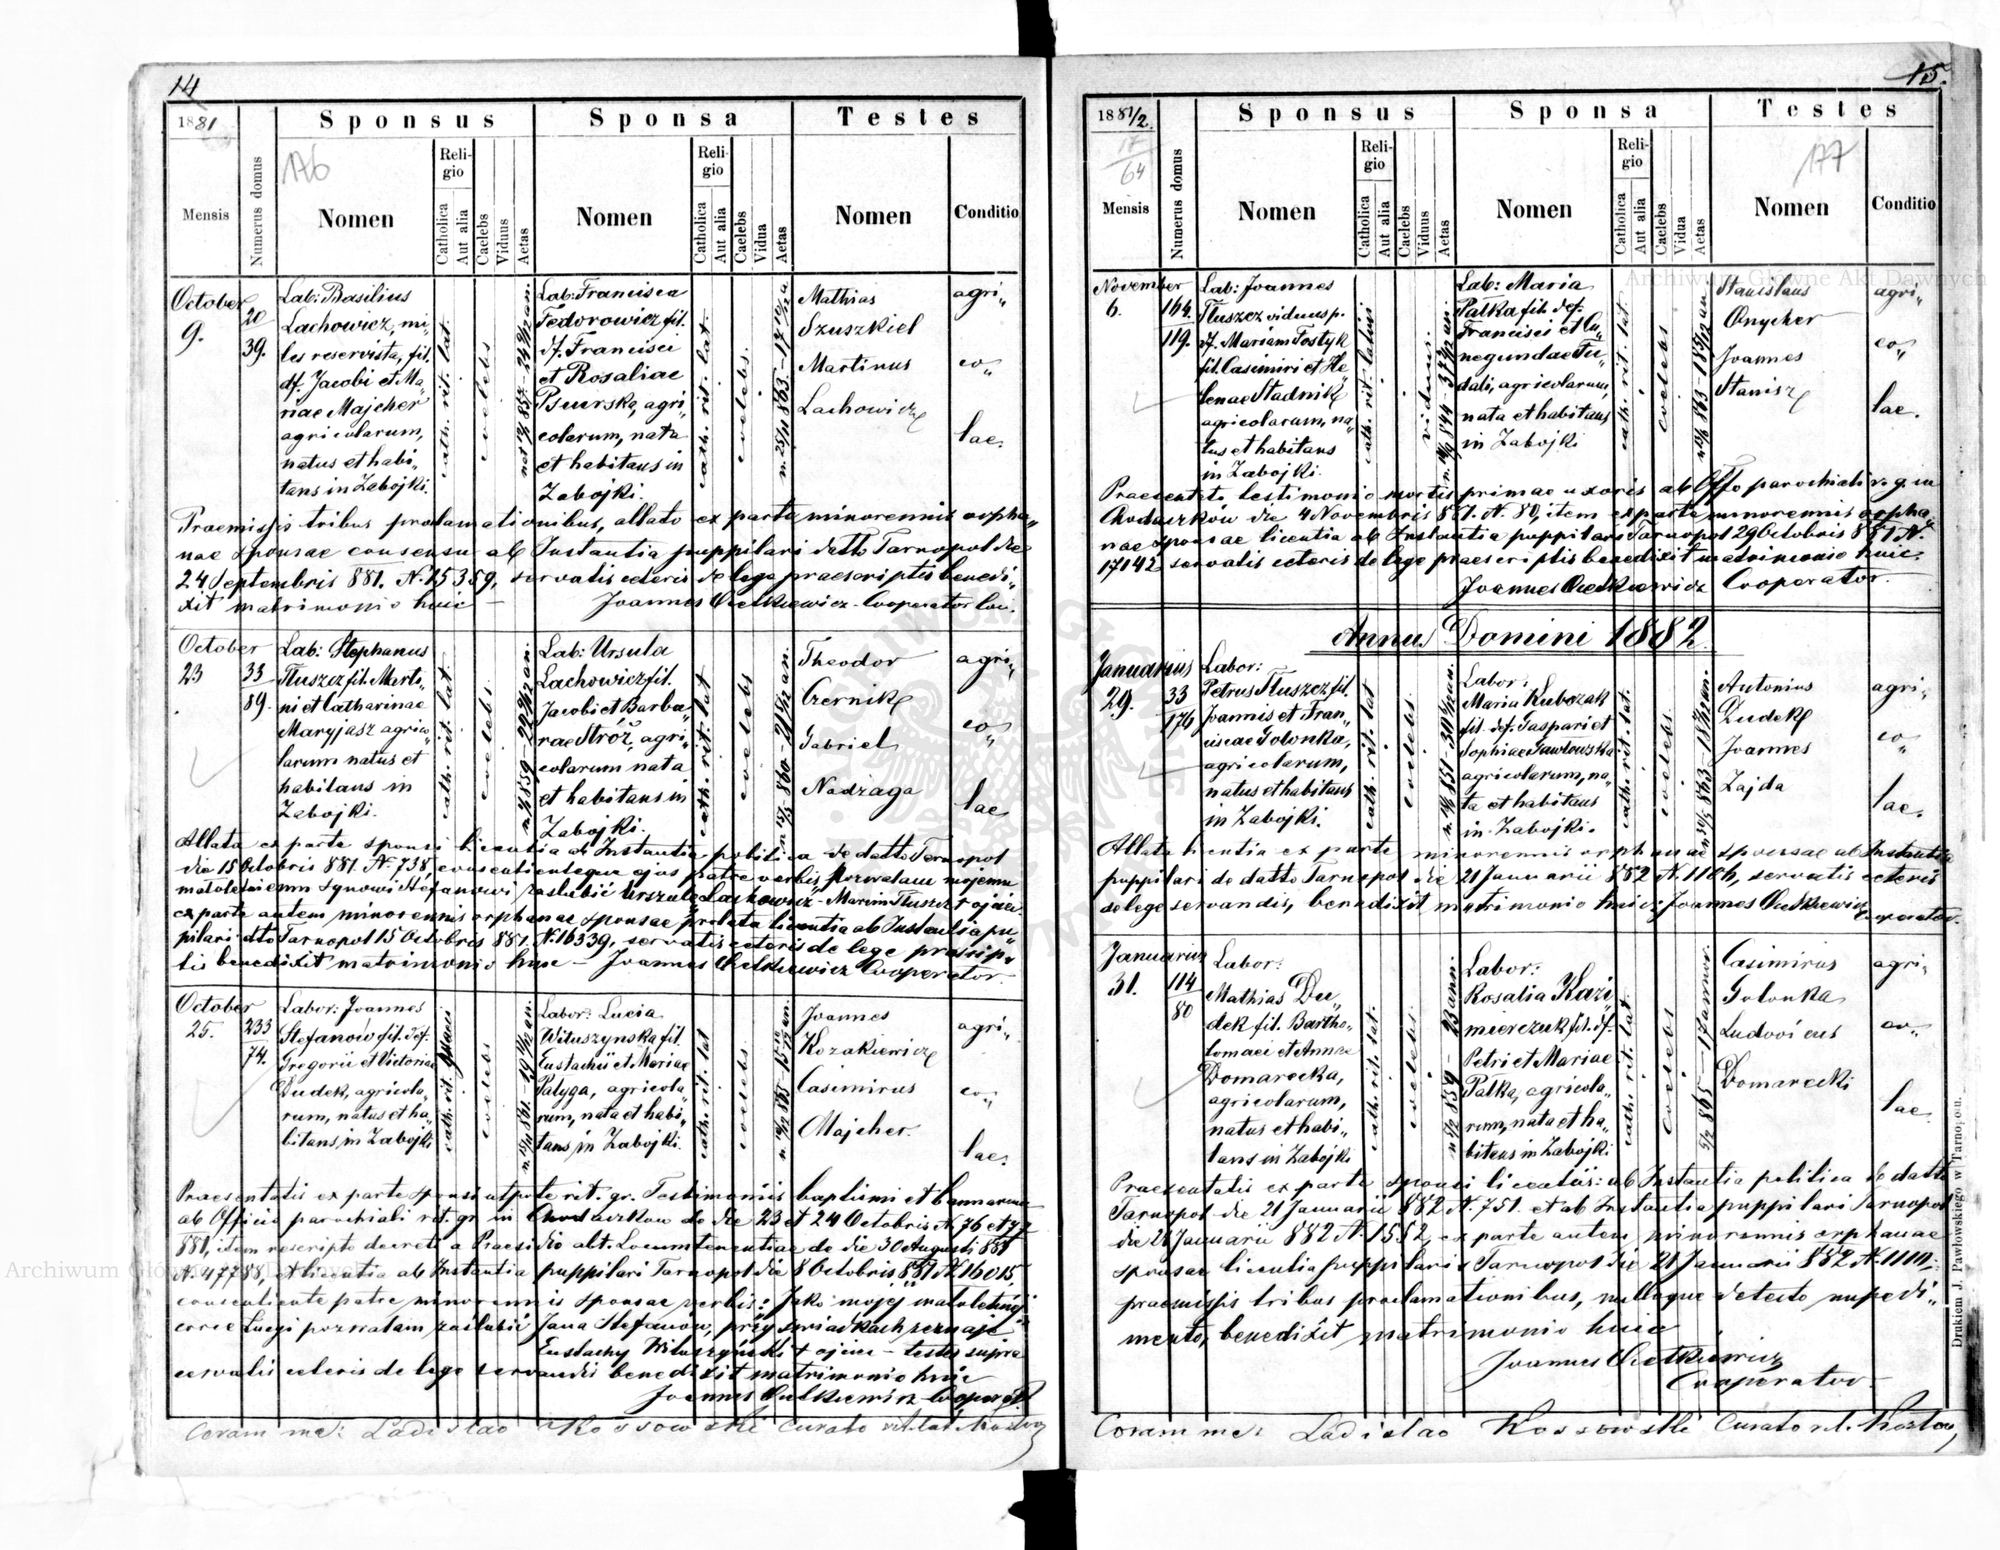 14
1881
Sponsus
Sponsa
Testes
176
Mensis
Numerus domus
Nomen
Religio
Catholica
Aut alia
Caelebs
Viduus
Aetas
Nomen
Religio
Catholica
Aut alia
Caelebs
Vidua
Aetas
Nomen
Conditio
October
9.
20
39.
Lab: Basilius
Lachowicz, mi„
les reservista, fil.
df. Jacobi et Ma„
riae Majcher
agricolarum,
natus et habi„
tans in Zabojki.
cath. rit. lat.
coelebs
Lab: Francisca
Fedorowicz fil.
df. Francisci
et Rosaliae
Pscurska, agri„
colarum, nata
et habitans in
Zabojki.
cath. rit. lat.
coelebs.
Mathias
Szuszkiel
Martinus
Lachowicz
agri„
co„
lae.
Praemissis tribus proclamationibus, allato ex parte minorennis orpha„
nae sponsae consensu ab Instantia puppilari dtto Tarnopol die
24 Septembris 881. N. 15359, servatis ceteris de lege praescriptis benedi„
xit matrimonio huic — Joannes Cetkiewicz Cooperator
October
23
33
89.
Lab: Stephanus
Tłuszcz fil. Marti„
ni et Catharinae
Maryjasz agrico„
larum natus et
habitans in
Zabojki.
cath. rit. lat.
coelebs.
Lab: Ursula
Lachowicz fil.
Jacobi et Barba„
rae Stróż, agri„
colarum nata
et habitans in
Zabojki.
cath. rit. lat.
coelebs
Theodor
Czernik
Gabriel
Nadraga
agri„
co„
lae
Allata ex parte sponsi licentia ab Instantia politica de datto Tarnopol
die 15 Octobris 881. N. 738, consentienteque ejus patre verbis pozwalam mojemu
małoletniemu synowi Stefanowi zaślubić Urszulę Lachowicz – Marcin Tłuszcz + ojciec
ex parte autem minorennis orphanae sponsae prolata licentia ab Instantia pu„
pilari dtto Tarnopol 15 Octobris 881. N. 16339, servatis ceteris de lege praescrip„
tis benedixit matrimonio huic — Joannes Cetkiewicz Cooperator
October
25.
233
74.
Labor: Joannes
Stefanów fil. def.
Gregorii et Victoriae
Dudek, agricola„
rum, natus et ha„
bitans in Zabojki
cath. rit. graeci
coelebs
Labor: Lucia
Wituszynska fil.
Eustachii et Mariae
Palyga, agricola„
rum, nata et habi„
tans in Zabojki.
cath. rit. lat
coelebs
Joannes
Kozakiewicz
Casimirus
Majcher.
agri„
co„
lae.
Praesentatis ex parte sponsi utpote rit. gr. Testimoniis baptismi et bannorum
ab Officio parochiali rit. gr. in Chodaczkow de die 23 et 24 Octobris N. 76 et 77
881, item rescripto decreti a Praesidio alt. Locumtenentiae de die 30 Augusti 881
N. 47788, et licentia ab Instantia puppilari Tarnopol die 8 Octobris 881 N. 16015.
consentiente patre minorennis sponsae verbis: Jako mojej małoletniej
corce Łucyi pozwalam zaślubić Jana Stefanow, przy swiadkach zeznaję
Eustachy Wituszyński + ojciec – testes supra
servatis ceteris de lege servandis benedixit matrimonio huic
Joannes Cetkiewicz Cooperator
Coram me: Ladislao Kossowski Curato rit. lat. Kozłow
15.
1881/2.
17
64
Sponsus
Sponsa
Testes
177
Mensis
Numerus domus
Nomen
Religio
Catholica
Aut alia
Caelebs
Viduus
Aetas
Nomen
Religio
Catholica
Aut alia
Caelebs
Vidua
Aetas
Nomen
Conditio
Archiwum Główne Akt Dawnych
November
6.
164.
119.
Lab: Joannes
Tłuszcz viduus p.
df. Mariam Tostyk
fil. Casimiri et He„
lenae Stadnik
agricolarum, na„
tus et habitans
in Zabojki.
cath. rit. latini
viduus.
Lab: Maria
Palka fil. def.
Francisci et Cu„
negundae Du„
dali, agricolarum,
nata et habitans
in Zabojki
cath. rit. lat.
coelebs
Stanislaus
Onycher
Joannes
Stanisz
agri„
co„
lae.
Praesentato testimonio mortis primae uxoris ab Offo parochiali r. g. in
Chodaczków die 4 Novembris 881. N. 80, item ex parte minorennis orpha„
nae sponsae licentia ab Instantia puppilari Tarnopol 29 Octobris 881 N.
17142 servatis ceteris de lege praescriptis benedixit matrimonio huic.
Joannes Cetkiewicz Cooperator
Annus Domini 1882.
Januarius
29.
33
176
Labor:
Petrus Tłuszcz fil.
Joannis et Fran„
ciscae Golonka,
agricolarum,
natus et habitans
in Zabojki.
cath. rit. lat
coelebs.
Labor:
Maria Kubczak
fil. def. Gaspari et
Sophiae Pawłowska
agricolarum, na„
ta et habitans
in Zabojki.
cath. rit. lat.
coelebs.
Antonius
Dudek
Joannes
Zajda
agri„
co„
lae.
Allata licentia ex parte minorennis orphanae sponsae ab Instantia
puppilari de datto Tarnopol die 21 Januarii 882 N. 1106, servatis ceteris
de lege servandis, benedixit matrimonio huic: Joannes Cetkiewicz
Cooperator.
Januarius
31.
114
80
Labor:
Mathias Du„
dek fil. Bartho„
lomaei et Annae
Domarecka,
agricolarum,
natus et habi„
tans in Zabojki
cath. rit. lat.
coelebs.
Labor:
Rosalia Kazi„
mierczuk fil. df.
Petri et Mariae
Palka, agricola„
rum, nata et ha„
bitans in Zabojki
cath. rit. lat.
coelebs
Casimirus
Golonka
Ludovicus
Domarecki
agri„
co„
lae
Praesentatis ex parte sponsi licentiis: ab Instantia politica de datto
Tarnopol die 21 Januarii 882 N. 751. et ab Instantia puppilari Tarnopol
die 21 Januarii 882 N. 1552, ex parte autem minorennis orphanae
sponsae licentia puppilaris Tarnopol die 21 Januarii 882 N. 1111,
praemissis tribus proclamationibus, nulloque detecto impedi„
mento, benedixit matrimonio huic
Joannes Cetkiewicz
Cooperator
Coram me: Ladislao Kossowski Curato r. l. Kozłow
Drukiem J. Pawłowskiego w Tarnopolu.
Archiwum Główne Akt Dawnych